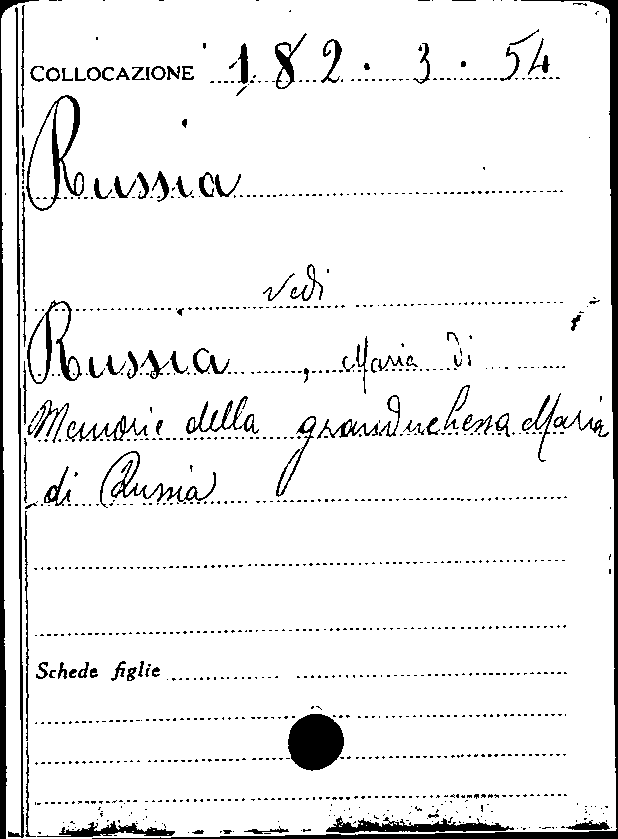 COLLOCAZIONE 182 . 3 . 54
Russia
vedi
Russia , Maria di
Memorie della granduchessa Maria
di Russia
Schede figlie